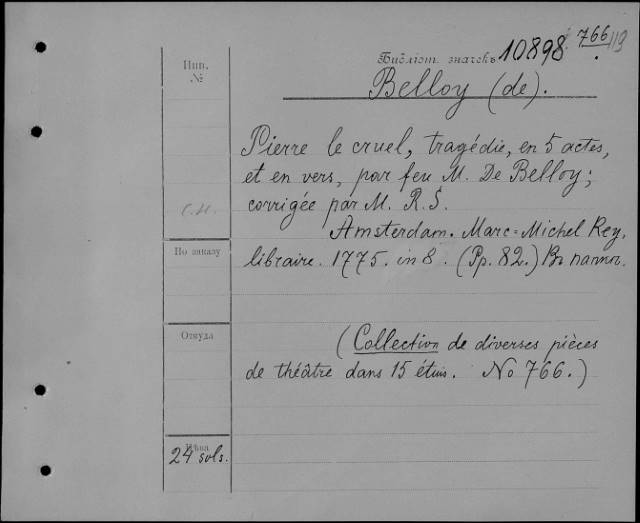 Библіот. значекъ 10898. 766 119
Инв.
№
Belloy (de).
Pierre le cruel, tragédie, en 5 actes,
et en vers, par feu M. De Belloy;
corrigée par M. R. S.
С.Н.
Amsterdam. Marc-Michel Rey,
По заказу
libraire. 1775. in 8. (Pp. 82.) Въ папкѣ.
Откуда
(Collection de diverses pièces
de théâtre dans 15 étuis. No 766.)
Цѣна
24 sols.